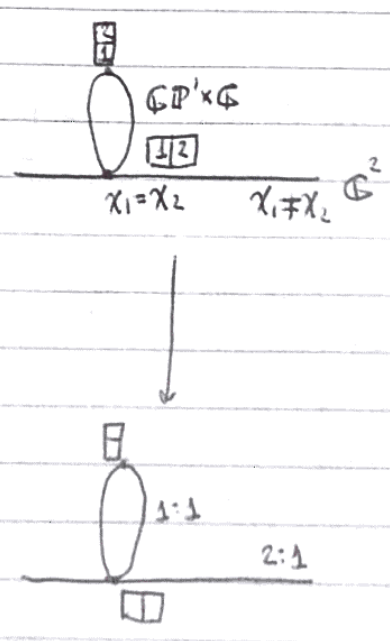 2
1
ℂP¹×ℂ
1 2
ℂ²
x₁=x₂ x₁≠x₂
1:1
2:1